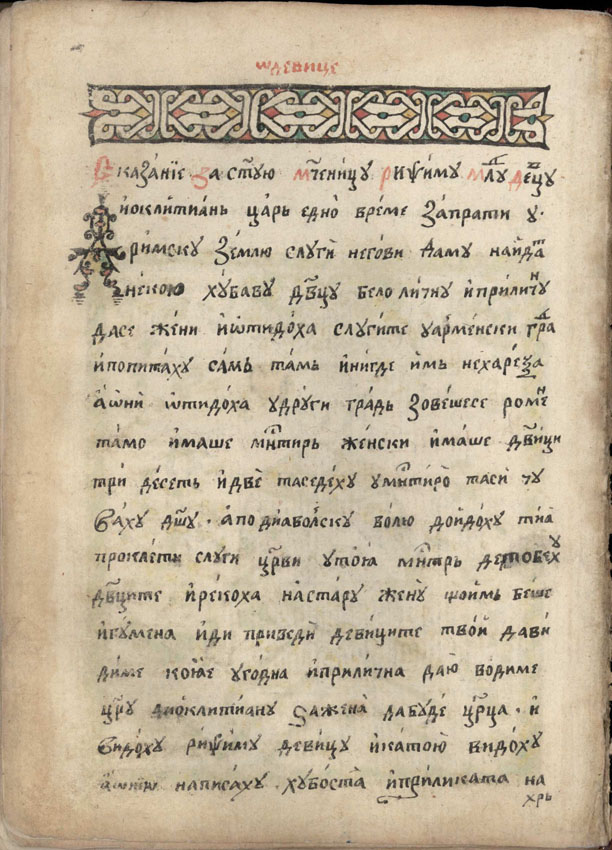 ѡ девице
Сказа́нїе за ст҃ую мч҃еницу риѱиму млⷣу дев҃цу
Дїоклитїань царь едно време запрати у
римску землю слуги негови да му найдат
некою хубаву дв҃цу бело личну и приличнꙋ
да се жени и ѿтидоха слугите у арменски граⷣ
и попитаху самь тамь и нигде имь не хареза
а ѡни ѿтидоха у други градь зовешесе роме
тамо имаше мн҃тирь женски имаше дв҃ици
три десеть и две та седеху у мн҃тиро та си чу
ваху дш҃у · а по диаволску волю дойдоху тиа
проклети слуги цр҃ви у тоїа мн҃трь де то беху
дв҃ците и рекоха на стару жену що имь беше
игумена иди приведи девиците твои да ви
диме кое угодна и прилична да ю водиме
цр҃у диоклитиану за жена да буде цр҃ца · и
видоху риѱиму девицу и като ю видоху
написаху хубоста и приликата на
хрь